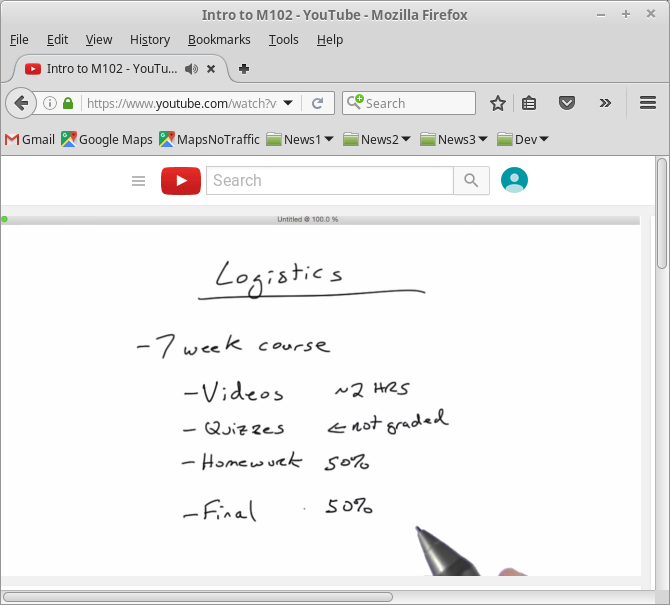 Intro to M102 - YouTube - Mozilla Firefox
File Edit View History Bookmarks Tools Help
Intro to M102 - YouTu...
https://www.youtube.com/watch?v Search
Gmail Google Maps MapsNoTraffic News1 News2 News3 Dev
Search
Untitled @ 100.0 %
Logistics
- 7 week course
- Videos ~2 HRS
- Quizzes ← not graded
- Homework 50%
- Final 50%